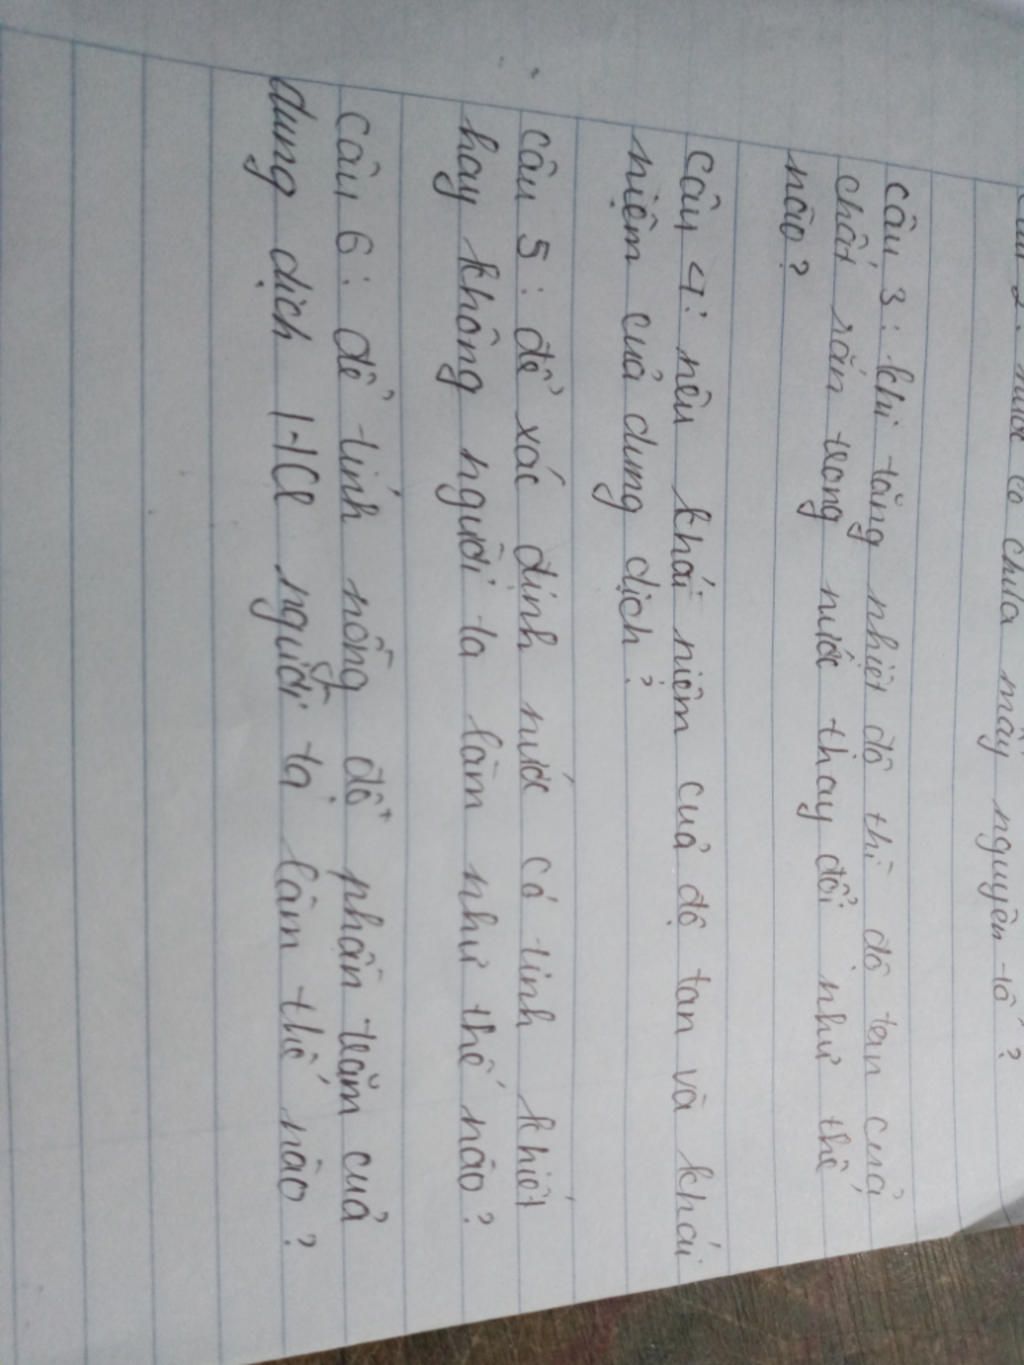 câu 2: nước có chứa mấy nguyên tố?
câu 3: khi tăng nhiệt độ thì độ tan của
chất rắn trong nước thay đổi như thế
nào?
câu 4: nêu khái niệm của độ tan và khái
niệm của dung dịch?
câu 5: để xác định nước có tinh khiết
hay không người ta làm như thế nào?
câu 6: để tính nồng độ phần trăm của
dung dịch HCl người ta làm thế nào?